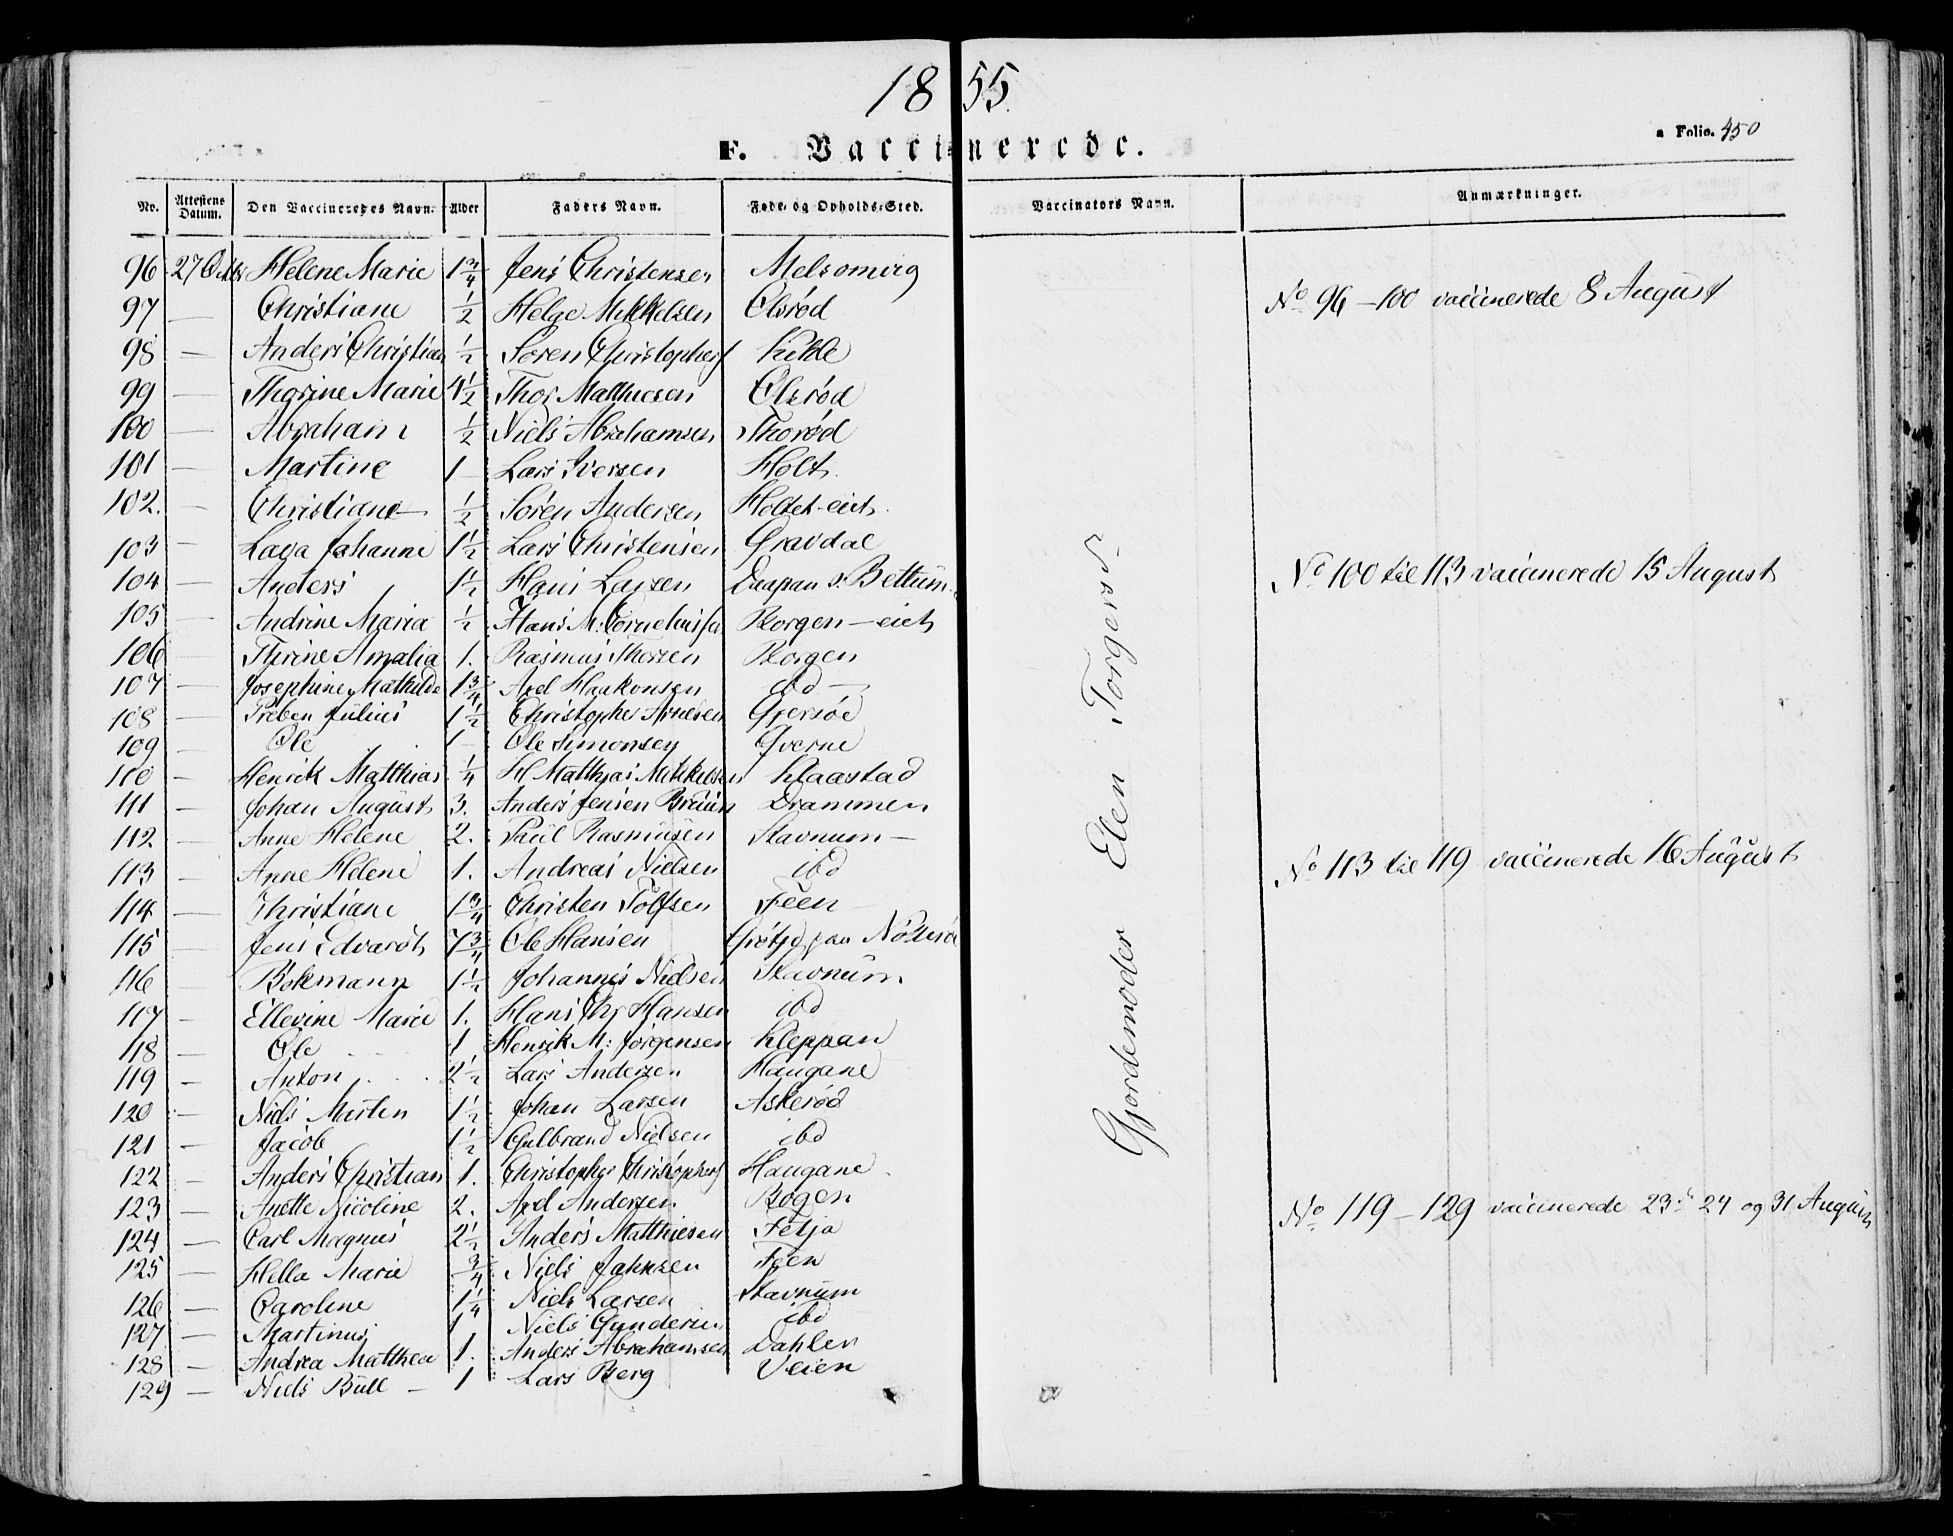 1855.
a Folio. 450
F. Vaccinerede.
No. Attestens Datum. Den Vaccineredes Navn. Alder Faders Navn. Føde- og Opholds-Sted. Vaccinators Navn. Anmærkninger.
96 27 Octbr Helene Marie 1 3/4 Jens Christensen Melsomvig
97 — Christiane 1/2 Helge Mikkelsen Olsrød
No 96 - 100 vaccinerede 8 August
98 — Anders Christian 1/2 Søren Christophers
99 — Thorine Marie 4 1/2 Thor Matthiesen Olsrød
100 — Abraham 1/2 Niels Abrahamsen Thorød
101 — Martine 1 Lars Iversen Holt
102. — Christiane 1/2 Søren Andersen Holtet-eiet
103 — Laga Johanne 1 1/2 Lars Christensen Gravdal
104 — Anders 1 1/2 Hans Larsen Daapan v. Bettum
No 100 til 113 vaccinerede 15 August
105 — Andrine Maria 1/2 Hans M: Corneliusen Borgen - eiet
106 — Thrine Amalia 1. Rasmus Thorsen Borgen
107 — Josephine Mathilde 1 3/4 Axel Haakonsen ibd —
108 — Preben Julius 1 1/2 Christopher Arnesen Gjersøe
109 — Ole 1 Ole Simonsen Qverne
110 — Henrik Matthias 1/4 H Matthias Mikkelsen Klaastad
111 — Johan August 3. Anders Jensen Bruun Drammen
112 — Anne Helene 2. Paul Rasmusen Stavnum —
113 — Anne Helene 1. Andreas Nielsen ibd
No 113 til 119 vaccinerede 16 August
114 — Christiane 1 3/4 Christen Tolfsen Feen
115 — Jens Edvardt 7 3/4 Ole Hansen paa Nøtterø
116 — Bokmann 1 1/2 Johannes Nielsen Stavnum
117 — Ellevine Marie 1. Hans Chr Hansen ibd
118 — Ole 1 Henrik M: Jørgensen Kleppan
119 — Anton 2 1/2 Lars Andersen Haugane
120 — Niels Morten 1 1/2 Johan Larsen Askerød
121 — Jacob 1 1/2 Gulbrand Nielsen ibd
122 — Anders Christian 1. Christopher Christophers Haugane
123 — Anette Nicoline 2. Axel Andersen Bogen
124 — Carl Magnus 2 1/2 Anders Matthiesen Fetja
No 119 - 129 vaccinerede 23 24 og 31 August
125 — Hella Marie 3/4 Niels Jahnsen Feen
126 — Caroline 1 1/4 Niels Larsen Stavnum
127 — Martinus 1 Niels Gundersen ibd
128 — Andrea Matthea 1. Anders Abrahamsen Dahlen
129 — Niels Bull — 1 Lars Berg Veien
Gjordemoder Elen Torgersd.